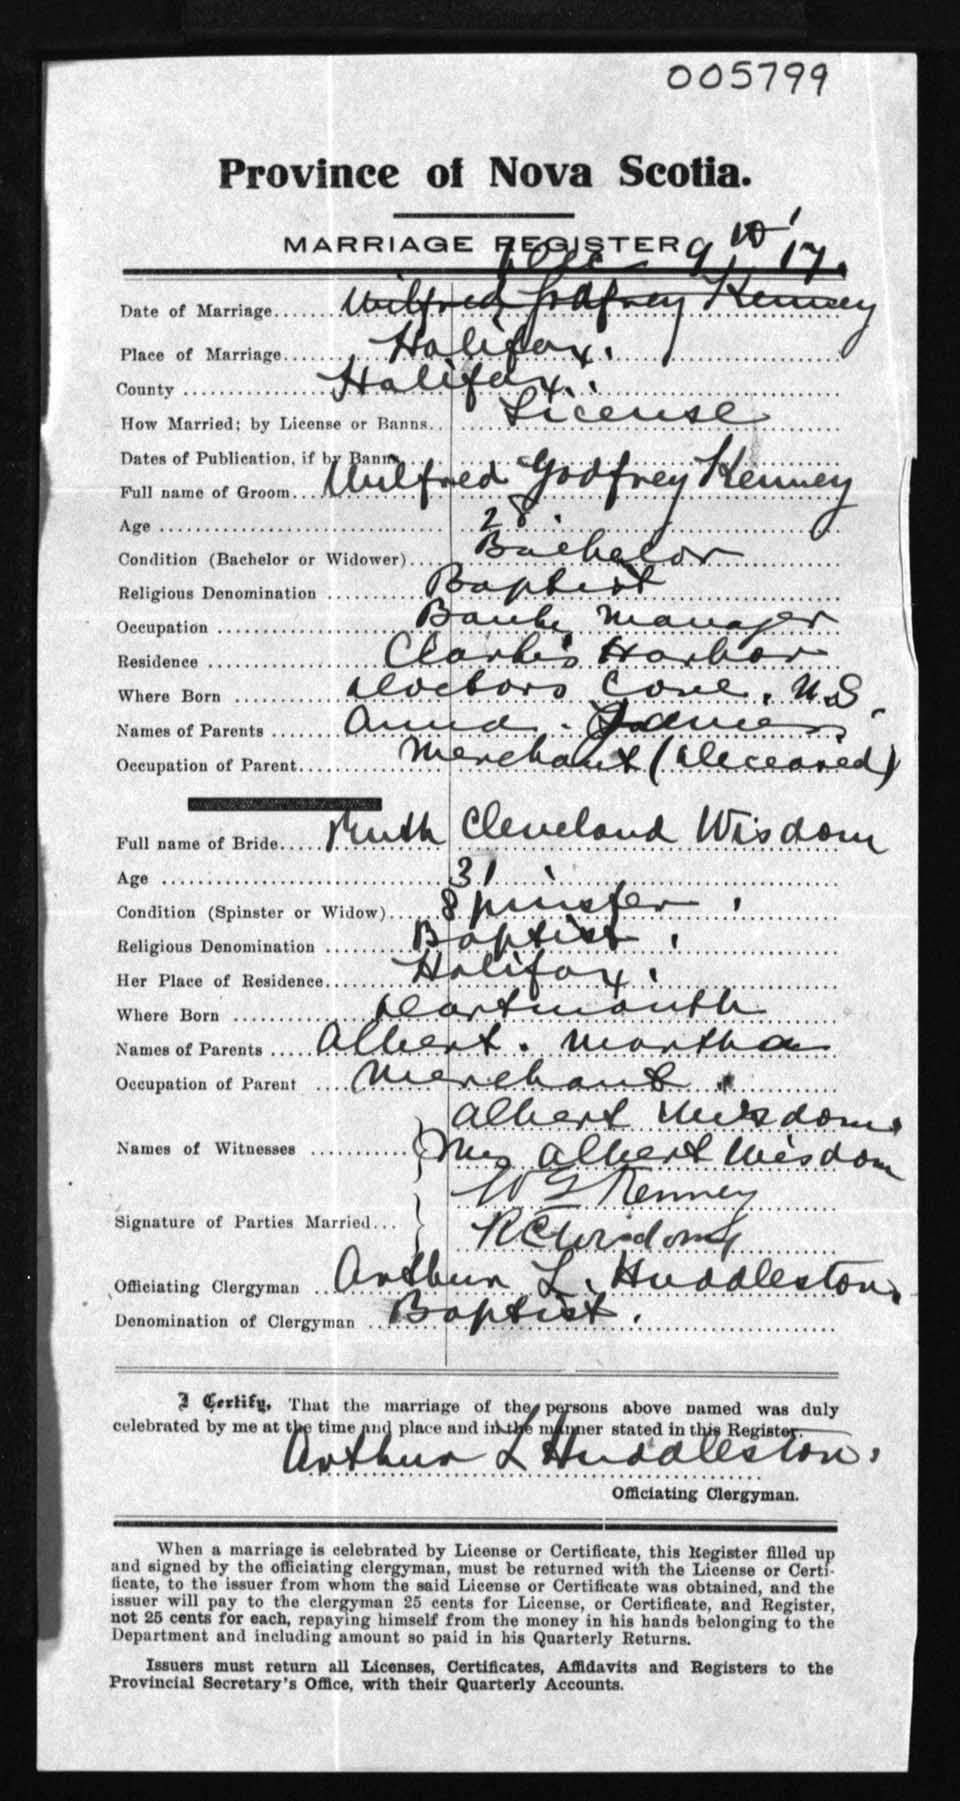 005799
Province of Nova Scotia.
MARRIAGE REGISTER
Dec 9th '17.
Date of Marriage....... Wilfred Godfrey Kenney
Place of Marriage....... Halifax.
County ....... Halifax.
How Married; by License or Banns.. License
Dates of Publication, if by Banns
Full name of Groom.... Wilfred Godfrey Kenney
Age ....... 28.
Condition (Bachelor or Widower).... Bachelor
Religious Denomination .......... Baptist
Occupation ....... Bank Manager
Residence ....... Clark's Harbor
Where Born ....... Doctors Cove. N.S.
Names of Parents ....... Anna. James
Occupation of Parent....... Merchant (Deceased)
Full name of Bride..... Ruth Cleveland Wisdom
Age ....... 31.
Condition (Spinster or Widow)..... Spinster.
Religious Denomination .......... Baptist.
Her Place of Residence....... Halifax.
Where Born ....... Dartmouth
Names of Parents ..... Albert. Martha
Occupation of Parent .... Merchant.
Albert Wisdom.
Names of Witnesses .......... Mrs Albert Wisdom
W G Kenney
Signature of Parties Married...
R C Wisdom
Officiating Clergyman .. Arthur L. Huddleston.
Denomination of Clergyman .. Baptist.
I Certify, That the marriage of the persons above named was duly
celebrated by me at the time and place and in the manner stated in this Register.
Arthur L Huddleston.
Officiating Clergyman.
When a marriage is celebrated by License or Certificate, this Register filled up
and signed by the officiating clergyman, must be returned with the License or Certi-
ficate, to the issuer from whom the said License or Certificate was obtained, and the
issuer will pay to the clergyman 25 cents for License, or Certificate, and Register,
not 25 cents for each, repaying himself from the money in his hands belonging to the
Department and including amount so paid in his Quarterly Returns.
Issuers must return all Licenses, Certificates, Affidavits and Registers to the
Provincial Secretary's Office, with their Quarterly Accounts.